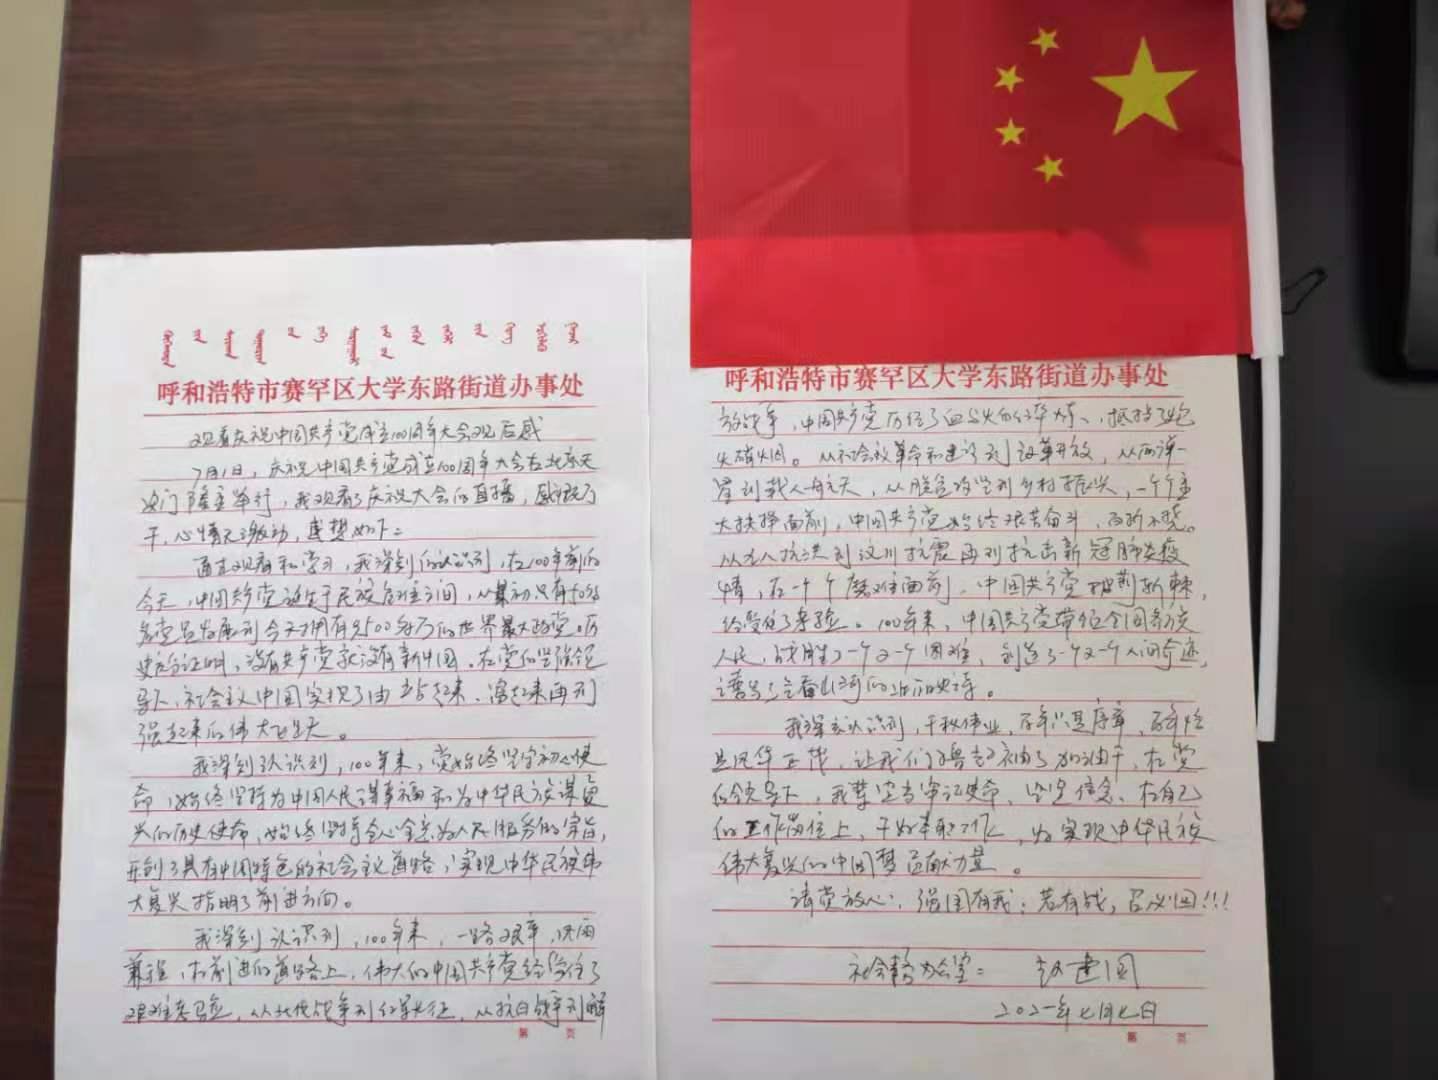 呼和浩特市赛罕区大学东路街道办事处
观看庆祝中国共产党成立100周年大会观后感
7月1日，庆祝中国共产党成立100周年大会在北京天
安门隆重举行，我观看了庆祝大会的直播，感慨万
千，心情无比激动，感想如下：
通过观看和学习，我深刻的认识到，在100年前的
今天，中国共产党诞生于民族危难之间，从最初只有50多
名党员发展到今天拥有9500多万的世界最大政党。历
史充分证明，没有共产党就没有新中国。在党的坚强领
导下，社会主义中国实现了由站起来、富起来再到
强起来的伟大飞跃。
我深刻认识到，100年来，党始终坚守初心使
命，始终坚持为中国人民谋幸福和为中华民族谋复
兴的历史使命，始终坚持全心全意为人民服务的宗旨，
开创了具有中国特色的社会主义道路，实现中华民族伟
大复兴指明了前进方向。
我深刻认识到，100年来，一路艰辛，风雨
兼程，在前进的道路上，伟大的中国共产党经受住了
艰难考验，从北伐战争到红军长征，从抗日战争到解
呼和浩特市赛罕区大学东路街道办事处
放战争，中国共产党历经了血与火的淬炼、抵挡了炮
火硝烟。从社会主义革命和建设到改革开放，从两弹一
星到载人航天，从脱贫攻坚到乡村振兴，一个个重
大抉择面前，中国共产党始终艰苦奋斗，百折不挠。
从九八抗洪到汶川抗震再到抗击新冠肺炎疫
情，在一个个磨难面前，中国共产党披荆斩棘，
经受住了考验。100年来，中国共产党带领全国各族
人民，战胜了一个又一个困难，创造了一个又一个人间奇迹，
谱写了气吞山河的壮丽史诗。
我深刻认识到，千秋伟业，百年只是序章，百年恰
是风华正茂，让我们撸起袖子加油干，在党
的领导下，我辈应当牢记使命、坚定信念、在自己
的工作岗位上，干好本职工作，为实现中华民族
伟大复兴的中国梦贡献力量。
请党放心，强国有我；若有战，召必回！！！
社会事务办公室： 赵建国
二〇二一年七月七日
第 页
第 页